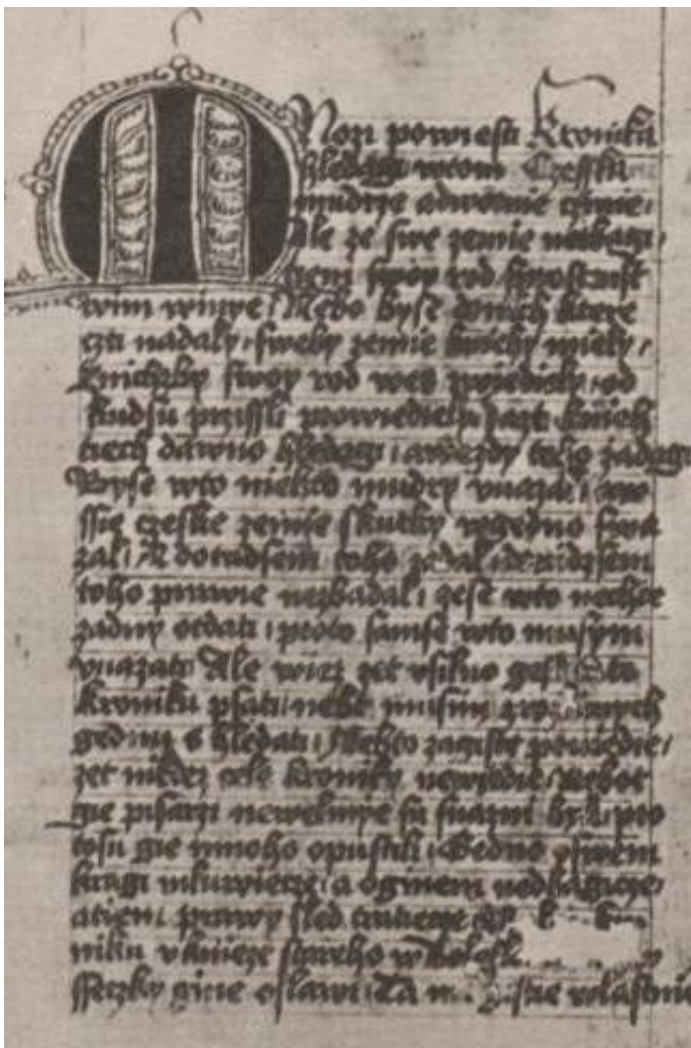 Mnozi powiesti Kroniku
hledagi wtom Czessku
mudrze adwornie czinie
Ale ze swe zemie netbagi
tiem swoy rod sprostenst
wim winye Nebo byse donich ktere
czti nadaly sweby zemie kniehy miely
Znichzby swoy rod wes zwiedieli od
kudsu przissli powiedieli Jazt kniech
tiech dawno hledagi awezdy toho zadagi
Byse wto niekto mudry vuazal
ssie czeske zemie skutky wgedno swa
zal A dotudsem toho zadal donidzsem
toho prawie nezbadal wto nechce
zadny otdati proto samse wto musym
vuazati Ale wiez zet vsilno gest to
kroniku psati nebt musim
gednu shledati Nebto zagiste powiedie
zet nikdez cele kroniky newiedie Nebot
gie pisarzi newelmye su snazni byli pro
tosu gie mnoho opustili Gedno oswem
kragi mluwiecze a oginem nedbagicze
atiem prawy sled tratiecze
niku v knieze stareho wBolesl
ssieczky gine oslawi Ta giste wlastnie